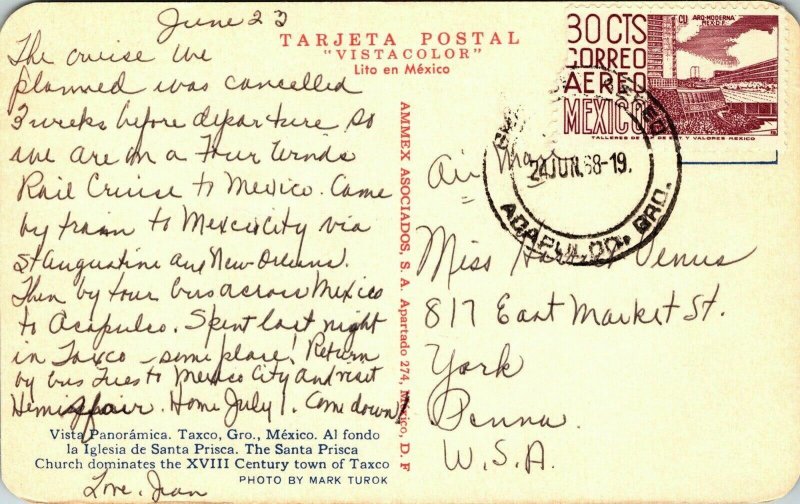 June 23
The cruise we
planned was cancelled
3 weeks before departure so
we are on a Four Winds
Rail Cruise to Mexico. Came
by train to Mexico City via
St Augustine and New Orleans.
Then by tour bus across Mexico
to Acapulco. Spent last night
in Taxco - some place! Return
by bus Tues to Mexico City and visit
Hemisfair. Home July 1. Come down!
Love, Jean
Vista Panorámica. Taxco, Gro., México. Al fondo
la Iglesia de Santa Prisca. The Santa Prisca
Church dominates the XVIII Century town of Taxco
PHOTO BY MARK TUROK
TARJETA POSTAL
"VISTACOLOR"
Lito en México
AMMEX ASOCIADOS, S. A. Apartado 274, México, D. F
30 CTS
CORREO
AEREO
MEXICO
CU ARQ-MODERNA
MEX D.F.
TALLERES DE EST. Y VALORES MEXICO
24 JUN. 68-19.
ACAPULCO, GRO.
Air Mail
Miss Venus
817 East Market St.
York
Penna.
U.S.A.